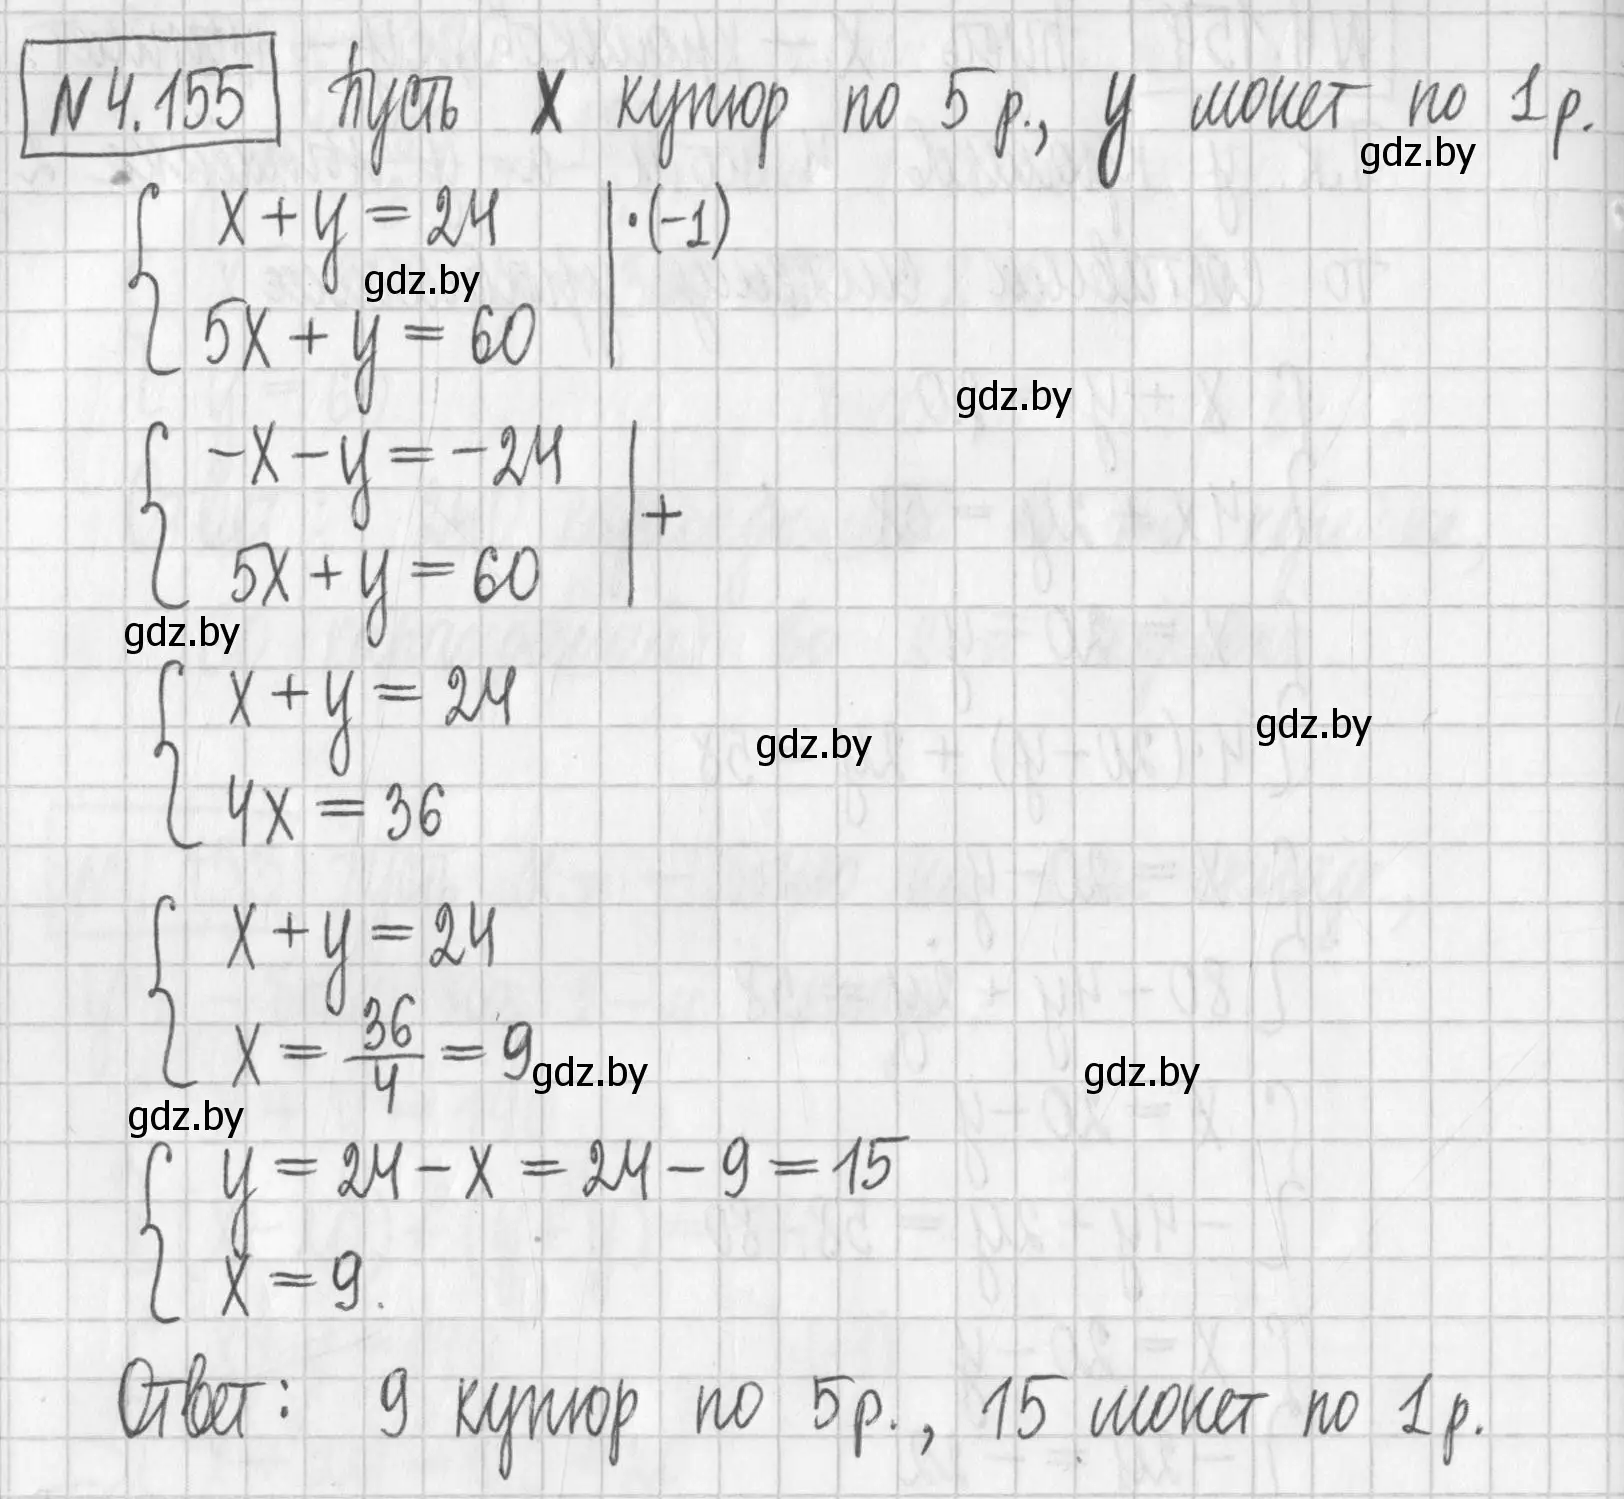 N 4.155 Пусть X купюр по 5 р., y монет по 1 р.
gdz.by
{ x + y = 24 | · (-1)
gdz.by
5x + y = 60
gdz.by
{ -x - y = -24 | +
5x + y = 60
gdz.by
{ x + y = 24
gdz.by
gdz.by
4x = 36
{ x + y = 24
x = 36/4 = 9
gdz.by gdz.by
gdz.by
{ y = 24 - x = 24 - 9 = 15
x = 9.
Ответ: 9 купюр по 5 р., 15 монет по 1 р.